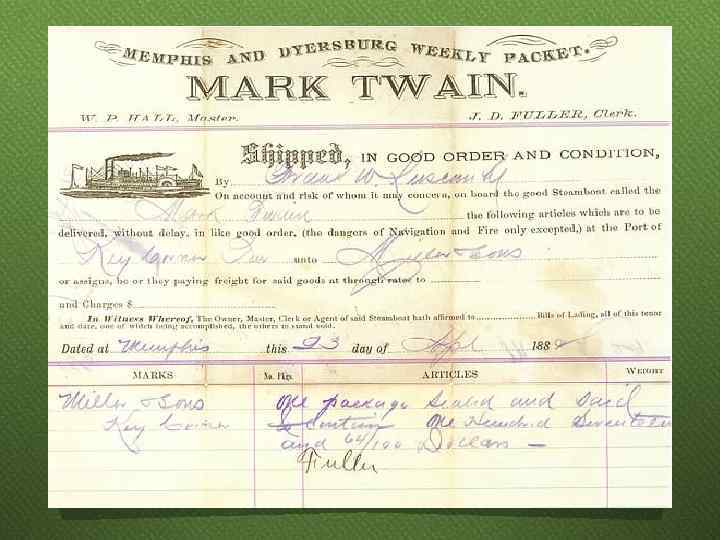 MEMPHIS AND DYERSBURG WEEKLY PACKET.
MARK TWAIN.
W. P. HALL, Master. J. D. FULLER, Clerk.
Shipped, IN GOOD ORDER AND CONDITION,
By W.
On account and risk of whom it may concern, on board the good Steamboat called the
Mark Twain the following articles which are to be
delivered, without delay, in like good order, (the dangers of Navigation and Fire only excepted,) at the Port of
Key Corner Tenn unto Miller & Sons
or assigns, he or they paying freight for said goods at through rates to
and Charges $
In Witness Whereof, The Owner, Master, Clerk or Agent of said Steamboat hath affirmed to Bills of Lading, all of this tenor
and date, one of which being accomplished, the others to stand void.
Dated at Memphis this 23 day of Apl 1882
MARKS No. Pkgs. ARTICLES WEIGHT
Miller & Sons One package Sealed and Said
Key Corner to contain One Hundred Seventeen
and 64/100 Dollars —
Fuller